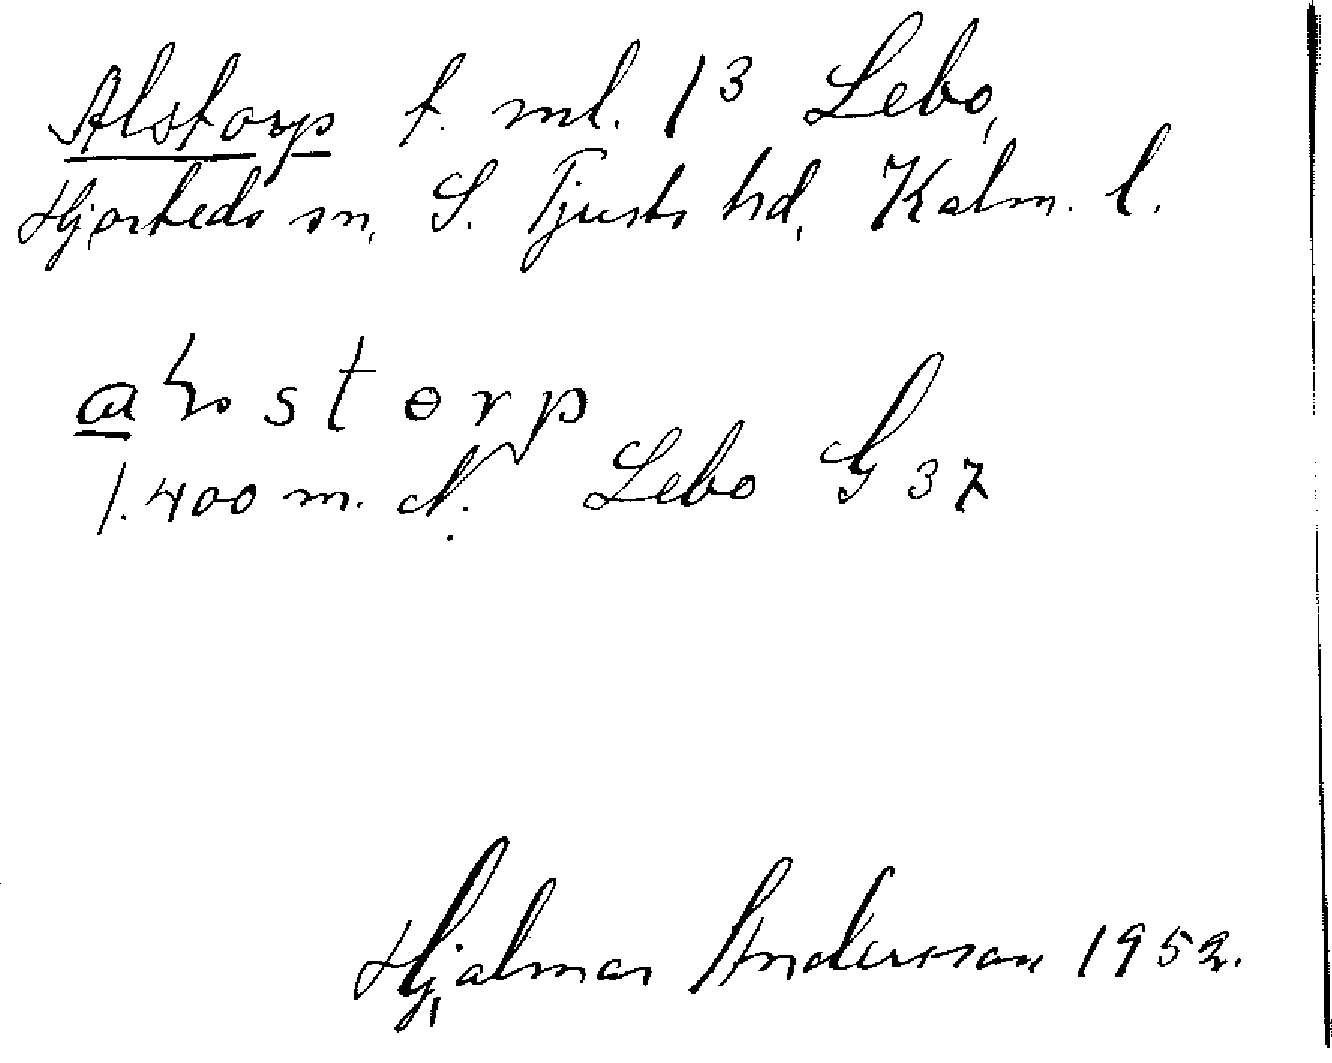 Alstorp t. ml. 1³ Lebo,
Hjorteds sn, S. Tjusts hd, Kalm. l.
storp
1.400 m. N. Lebo G 37
Hjalmar Andersson 1952.